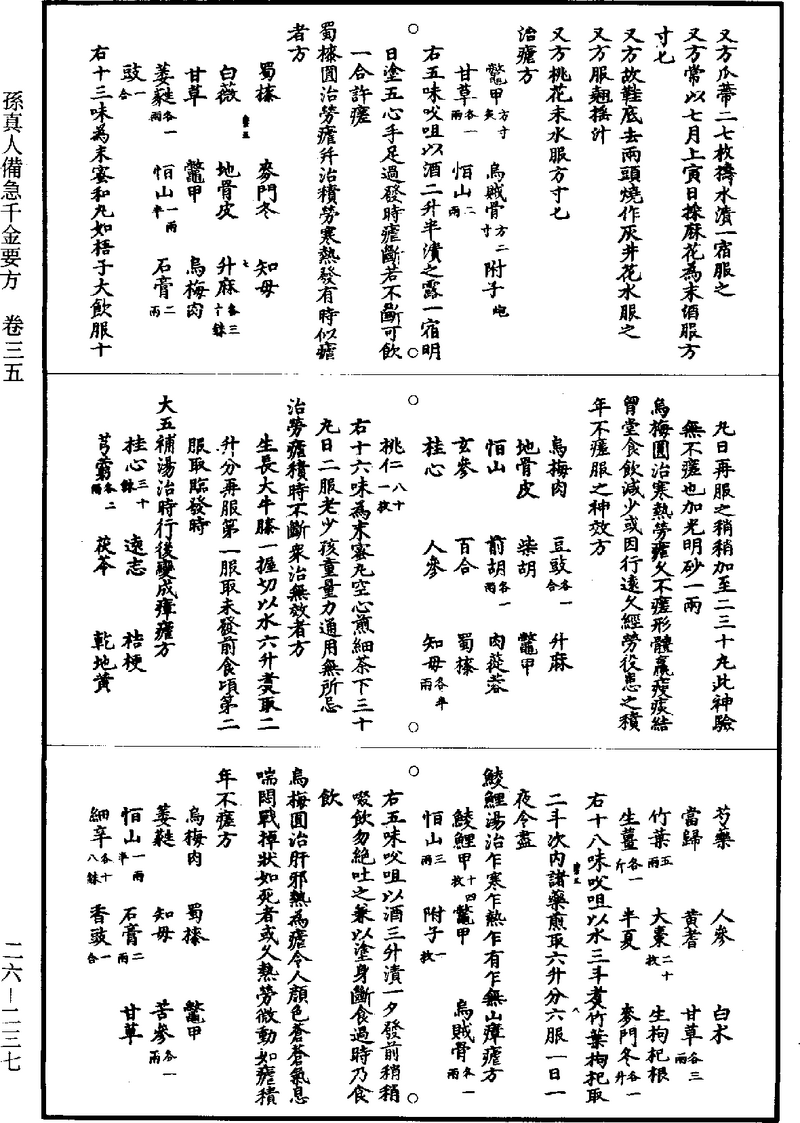 孫真人備急千金要方　卷三五
二六—二三七
又方瓜蔕二七枚擣水漬一宿服之
又方常以七月上寅日採麻花為末酒服方
寸七
又方故鞋底去兩頭燒作灰井花水服之
又方服翹搖汁
又方桃花末水服方寸七
治瘧方
鼈甲方寸 烏賊骨方二寸 附子炮
甘草各一兩 恒山二兩
右五味㕮咀以酒二升半漬之露一宿明
日塗五心手足過發時瘧斷若不斷可飲
一合許瘥
蜀㯶圓治勞瘧并治積勞寒熱發有時似瘧
者方
蜀㯶 麥門冬 知母
白薇 地骨皮 升麻各三十銖
甘草 鼈甲 烏梅肉
萎蕤各一兩 恒山一兩半 石膏二兩
豉一合
右十三味為末蜜和丸如梧子大飲服十
丸日再服之稍稍加至二三十丸此神驗
無不瘥也加光明砂一兩
烏梅圓治寒熱勞瘧久不瘥形體羸瘦痰結
胷堂食飲減少或因行遠久經勞役患之積
年不瘥服之神效方
烏梅肉 豆豉各一合 升麻
地骨皮 柴胡 鼈甲
恒山 前胡各一兩 肉蓯蓉
玄參 百合 蜀㯶
桂心 人參 知母各半兩
桃仁八十一枚
右十六味為末蜜丸空心煎細茶下三十
丸日二服老少孩童量力通用無所忌
治勞瘧積時不斷衆治無效者方
生長大牛膝一握切以水六升煑取二
升分再服第一服取未發前食頃第二
服取臨發時
大五補湯治時行後變成瘴瘧方
桂心三十銖 遠志 桔梗
芎藭各二兩 茯苓 乾地黃
芍藥 人參 白朮
當歸 黃耆 甘草各三兩
竹葉五兩 大棗二十枚 生枸杞根
生薑各一斤 半夏 麥門冬各一升
右十八味㕮咀以水三斗煑竹葉枸杞取
二斗次内諸藥煎取六升分六服一日一
夜令盡
鯪鯉湯治乍寒乍熱乍有乍無山瘴瘧方
鯪鯉甲十四枚 鼈甲 烏賊骨各一兩
恒山三兩 附子一枚
右五味㕮咀以酒三升漬一夕發前稍稍
啜飲勿絕吐之兼以塗身斷食過時乃食
飲
烏梅圓治肝邪熱為瘧令人顏色蒼蒼氣息
喘悶戰掉狀如死者或久熱勞微動如瘧積
年不瘥方
烏梅肉 蜀㯶 鼈甲
萎蕤 知母 苦參各一兩
恒山一兩半 石膏二兩 甘草
細辛各十八銖 香豉一合